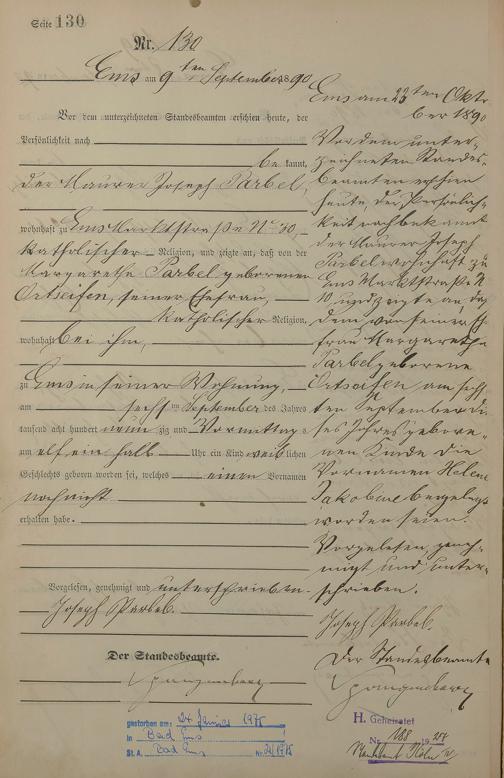 Seite 130
Nr. 130
Ems am 9ten September 1890
Vor dem unterzeichneten Standesbeamten erschien heute, der
Persönlichkeit nach
be kannt,
der Maurer Joseph Parbel,
wohnhaft zu Ems Marktstraße No 10,
katholischer Religion, und zeigte an, daß von der
Margaretha Parbel geborenen
Ortseifen, seiner Ehefrau,
katholischer Religion,
wohnhaft bei ihm,
zu Ems in seiner Wohnung,
am sechsten September des Jahres
tausend acht hundert neunzig und Vormittags
um elf ein halb Uhr ein Kind weiblichen
Geschlechts geboren worden sei, welches einen Vornamen
noch nicht
erhalten habe.
Vorgelesen, genehmigt und unterschrieben.
Joseph Parbel.
Der Standesbeamte.
Spangenberg
gestorben am: 1975
in Bad Ems
St. A. Bad Ems Nr.
Ems am 23ten Okto
ber 1890
Vor dem unter-
zeichneten Standes-
beamten erschien
heute der Persönlich-
keit nach bekannt
der Maurer Joseph
Parbel wohnhaft zu
Ems Marktstraße No
10 und zeigte an, daß
dem von seiner Ehe
frau Margaretha
Parbel geborene
Ortseifen am sechs
ten September die
ses Jahres gebore-
nen Kinde die
Vornamen Helene
Jakobine beigelegt
worden seien.
Vorgelesen, geneh-
migt und unter-
schrieben.
Joseph Parbel.
Der Standesbeamte
Spangenberg
H. Geheiratet
Nr. 188 19
Standesamt Köln